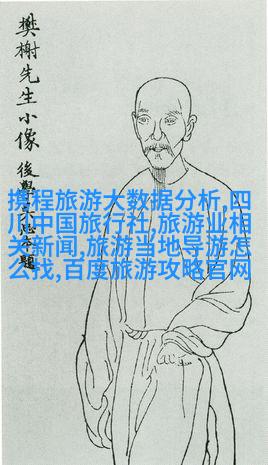 樊榭先生小像
後學
題
携程旅游大数据分析,四
川中国旅行社,旅游业相
关新闻,旅游当地导游怎
么找,百度旅游攻略官网